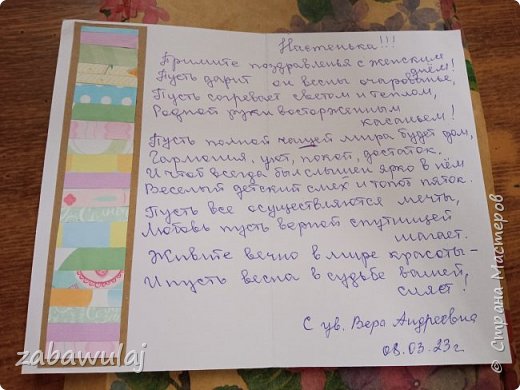 Настенька!!!
Примите поздравленья с женским
днём!
Пусть дарит он весны очарованье,
Пусть согревает светом и теплом,
Родной руки восторженным
касаньем!
Пусть полной чашей мира будет дом,
Гармония, уют, покой, достаток.
И чтоб всегда был слышен ярко в нём
Веселый детский смех и топот пяток.
Пусть все осуществляются мечты,
Любовь пусть верной спутницей
шагает.
Живите вечно в мире красоты -
И пусть весна в судьбе вашей
сияет!
С ув. Вера Андреевна
08.03.23г.
zabawulaj
© Страна Мастеров